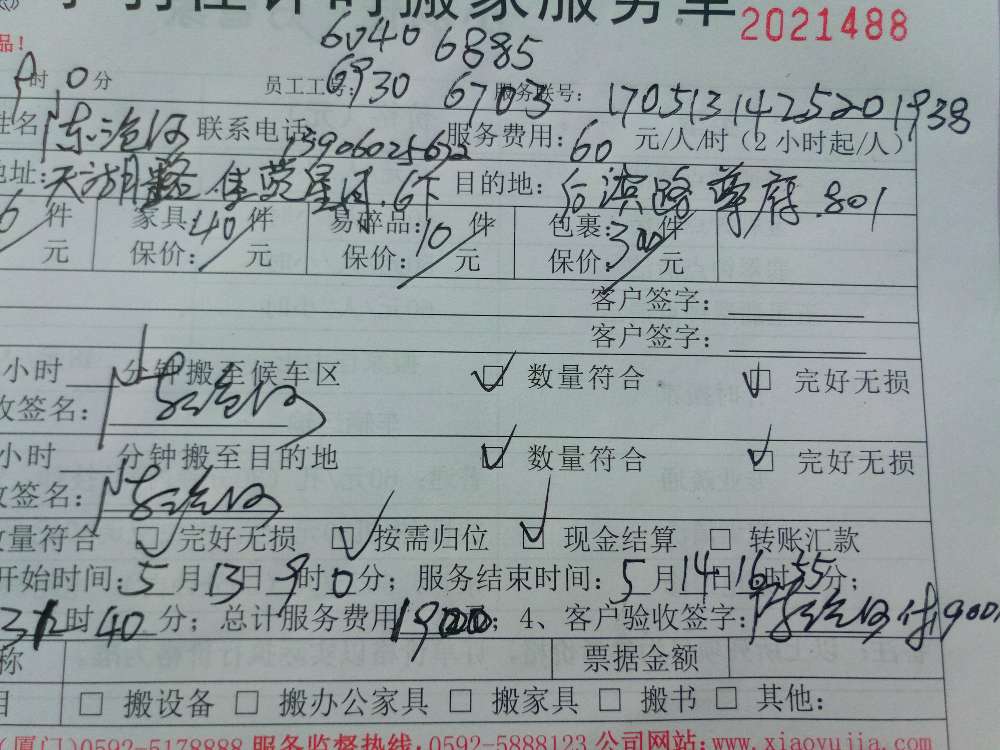 时搬家服务单
2021488
品!
6040 6885
9时0分 员工工号: 6930 6703 服务联号: 170513142520 1938
姓名 联系电话 13906025622 服务费用: 60 元/人/时(2小时起/人)
地址: 天湖路 佳莲星 目的地: 滨路 尊府.801
6件 家具: 40件 易碎品: 10件 包裹: 300件
元 保价: 元 保价: 元 保价: 元
客户签字:
客户签字:
小时 分钟搬至候车区 数量符合 完好无损
收签名:
小时 分钟搬至目的地 数量符合 完好无损
收签名:
数量符合 完好无损 按需归位 现金结算 转账汇款
开始时间: 5月13日9时0分; 服务结束时间: 5月14日16时55分;
时40分; 总计服务费用1900; 4、客户验收签字: 付1900
称 票据金额
目 搬设备 搬办公家具 搬家具 搬书 其他:
(厦门)0592-5178888 服务监督热线:0592-5888123 公司网站:www.xiaoyujia.com